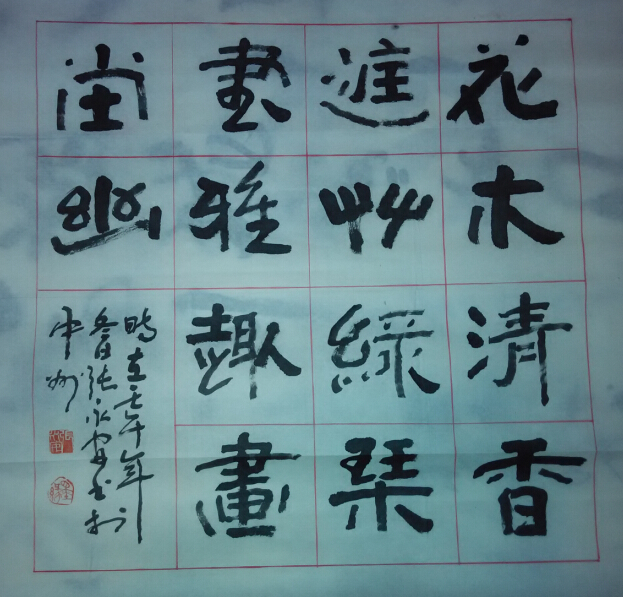 花木清香
庭艸綠琹
書雅趣畫
堂幽
時在壬午年
張永書於
中州